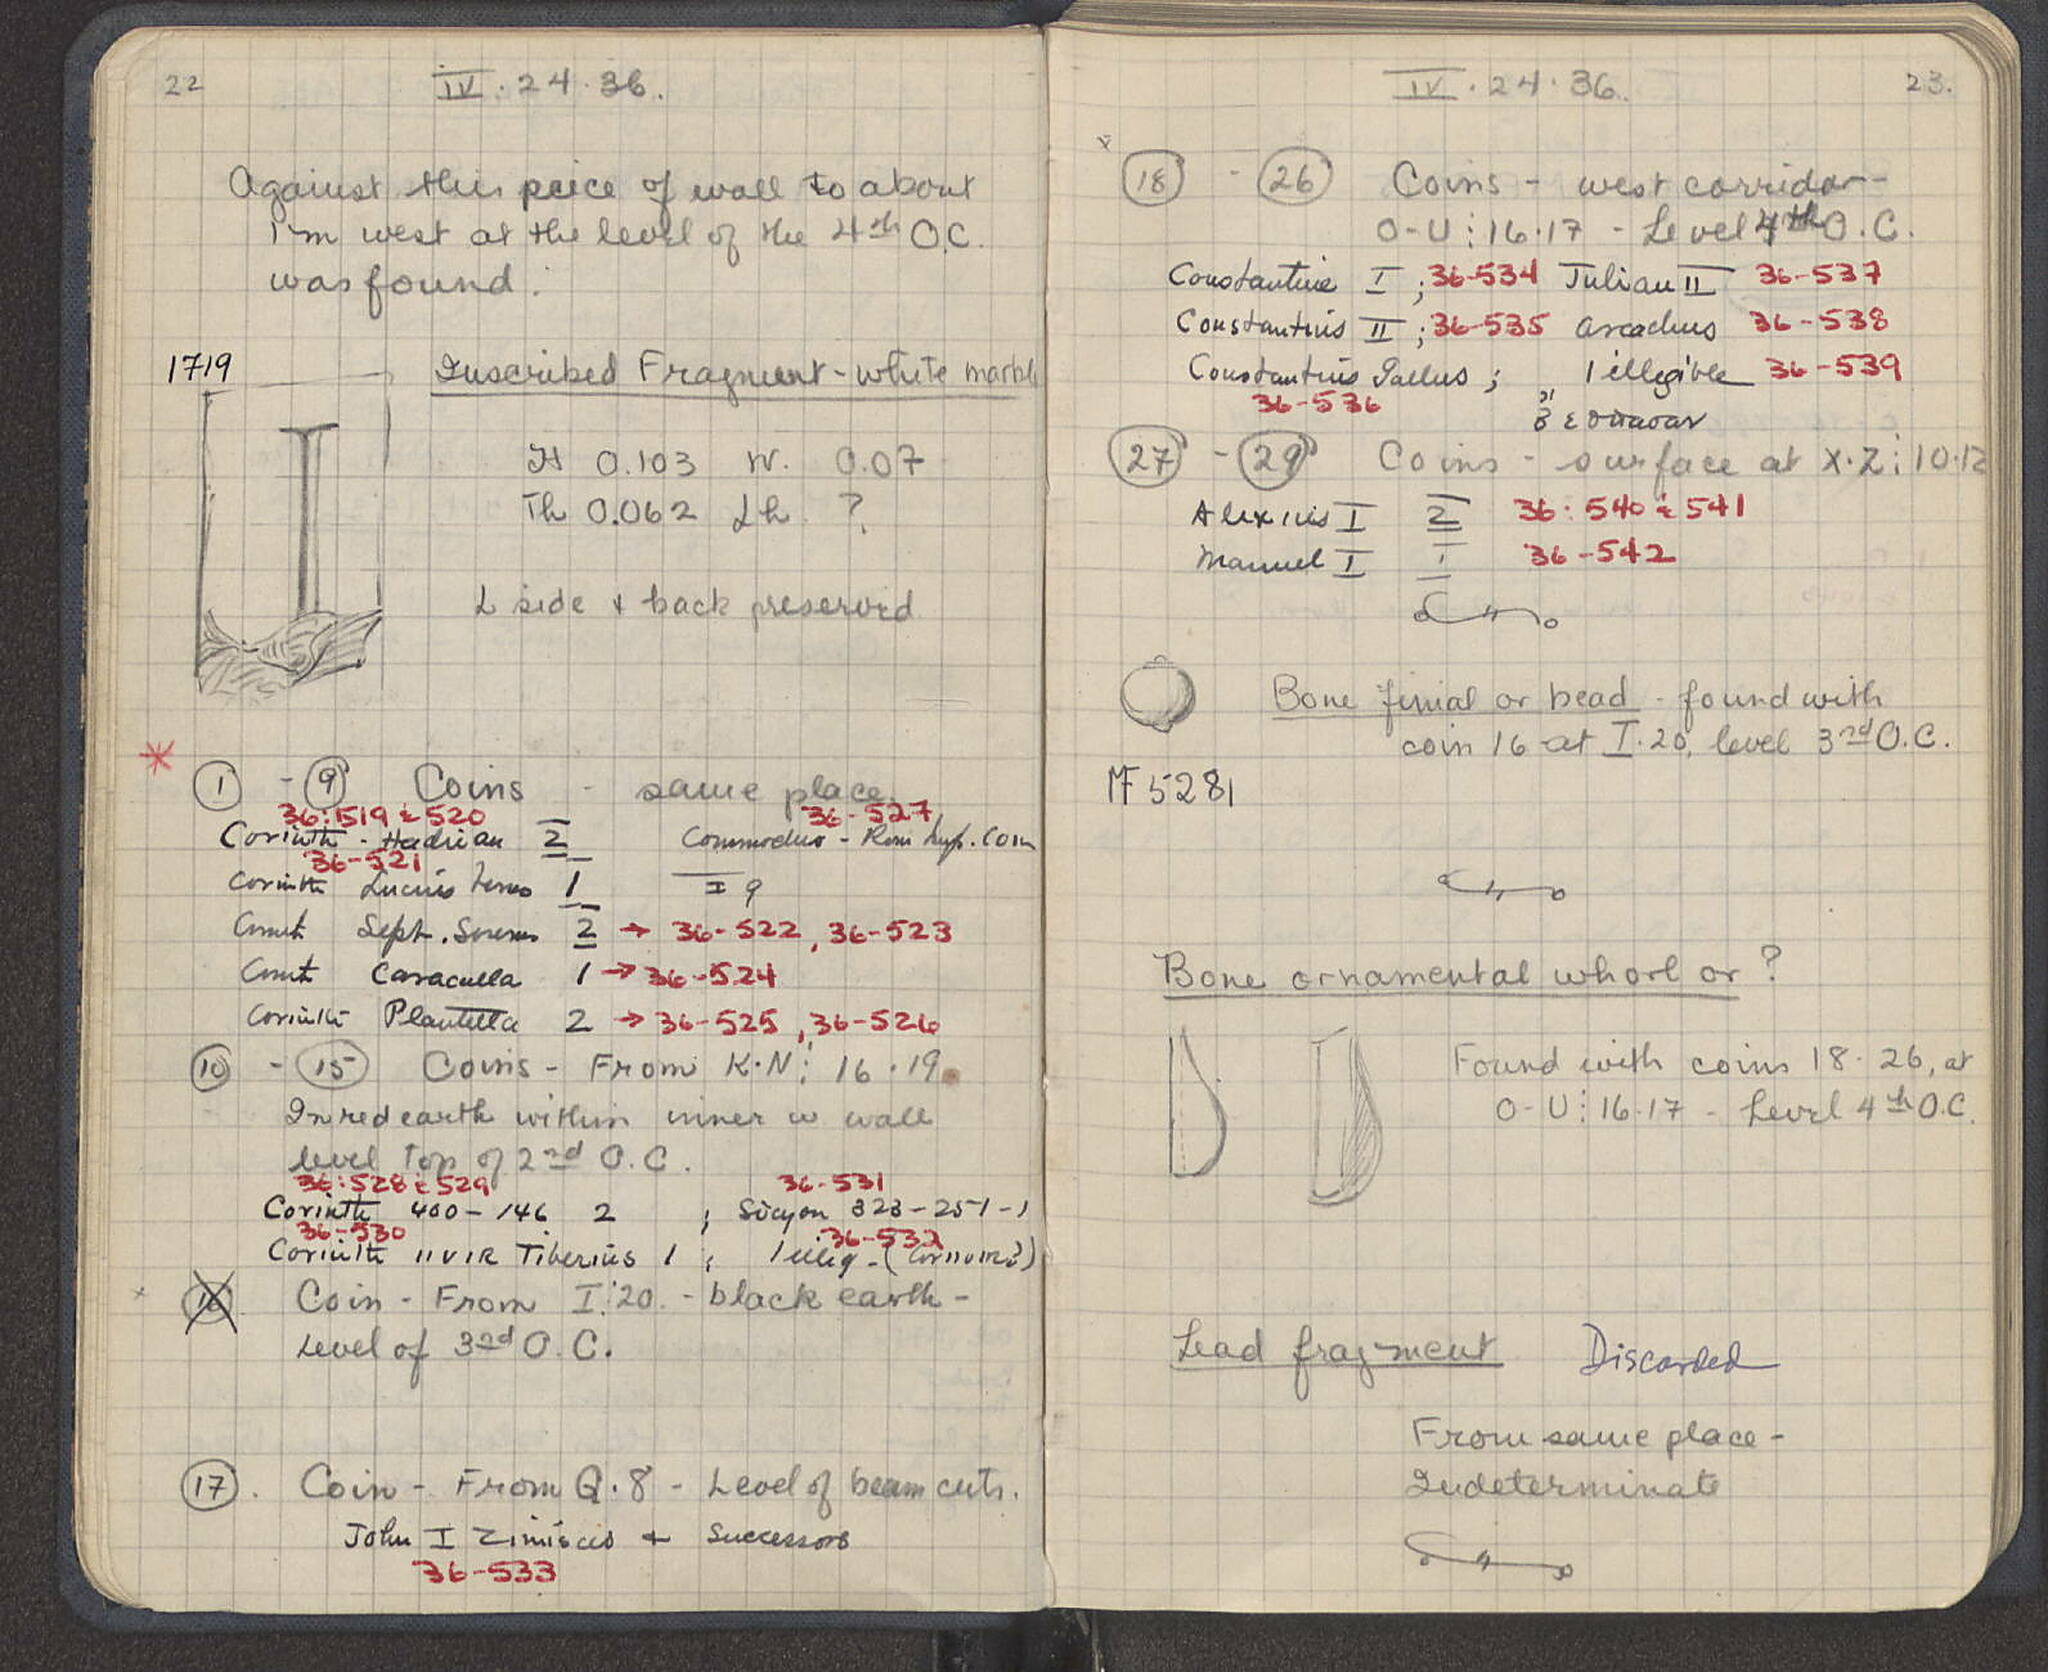 22
IV · 24 · 36.
Against this peice of wall to about
1 m west at the level of the 4th O.C.
was found:
1719
Inscribed Fragment - white marble
H 0.103 W. 0.07
Th 0.062 Lh. ?
L side + back preserved
① - ⑨ Coins - same place.
36:519 & 520 36-527
Corinth - Hadrian 2 Commodus - Rom Imp. Coin
36-521
Corinth Lucius Verus 1 I 9
Corinth Sept. Severus 2 → 36-522, 36-523
Corinth Caracalla 1 → 36-524
Corinth Plautilla 2 → 36-525, 36-526
⑩ - ⑮ Coins - From K·N: 16·19
In red earth within inner w wall
level top of 2nd O.C.
36:528 & 529 36-531
Corinth 400-146 2 ; Sicyon 323-251-1
36-530 36-532
Corinth IIVIR Tiberius 1 ; 1 illeg -
16 Coin - From I:20. - black earth -
level of 3rd O.C.
⑰. Coin - From Q·8 - Level of beam cuts.
John I Zimisces + Successors
36-533
IV · 24 · 36.
23.
x
⑱ - ㉖ Coins - west corridor -
O-U: 16·17 - Level 4th O.C.
Constantine I ; 36-534 Julian II 36-537
Constantius II ; 36-535 Arcadius 36-538
Constantius Gallus ; 1 illegible 36-539
36-536
㉗ - ㉙ Coins - surface at X·Z: 10·12
Alexius I 2 36:540 & 541
Manuel I 1 36-542
Bone finial or bead - found with
coin 16 at I·20, level 3rd O.C.
MF 5281
Bone ornamental whorl or ?
Found with coins 18-26, at
O-U: 16·17 - Level 4th O.C.
Lead fragment Discarded
From same place -
Indeterminate